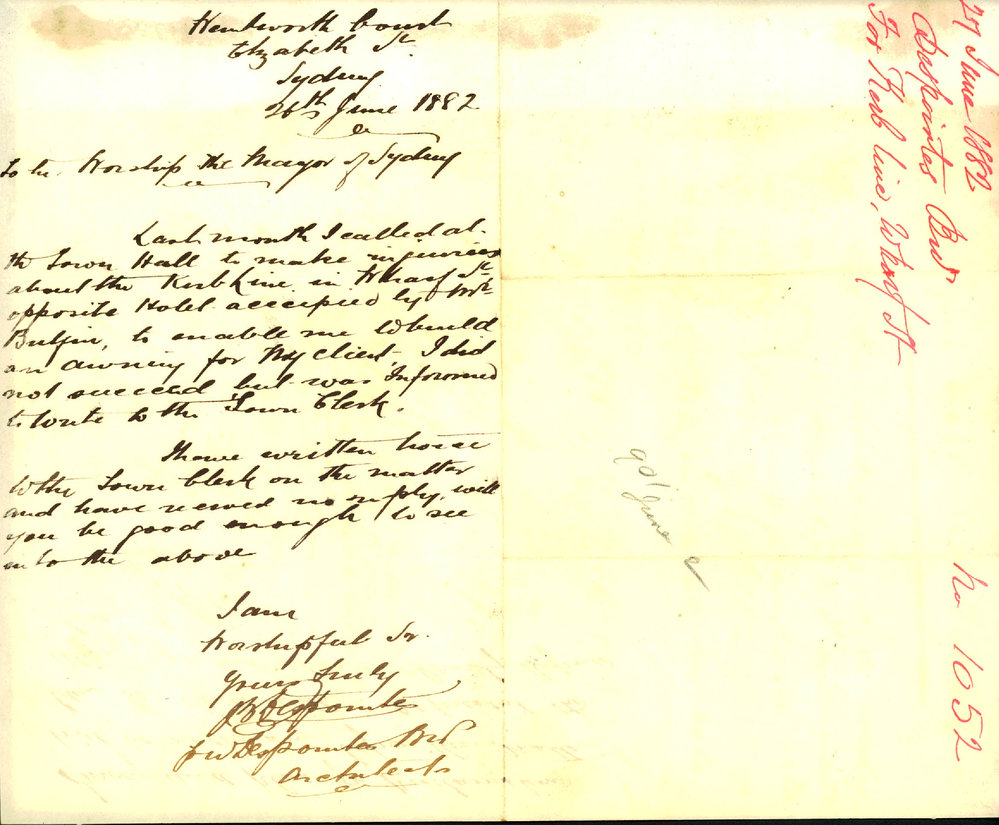 Wentworth Court
Elizabeth St
Sydney
26th June 1882
to his Worship the Mayor of Sydney
Last month I called at
the Town Hall to make inquiries
about the Kerb Line in Wharf St
opposite Hotel accepied by Mr
to enable me to build
an awning for My client, I did
not succeed but was Informed
to write to the Town Clerk.
I have written
to the Town Clerk on the matter
and have received no reply, will
you be good enough to see
into the above
I am
Worshipful Sir
Yours Truly
Despointes
Despointes Brd
Architects
27 June 1882
Despointes Brd
For Kerb line, Wharf St
June
No 1052